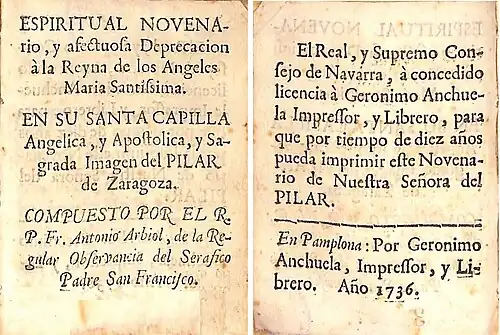 ESPIRITUAL NOVENA-
rio, y afectuosa Deprecacion
à la Reyna de los Angeles
Maria Santissima.
EN SU SANTA CAPILLA
Angelica, y Apostolica, y Sa-
grada Imagen del PILAR
de Zaragoza.
COMPUESTO POR EL R.
P. Fr. Antonio Arbiol, de la Re-
gular Observancia del Serafico
Padre San Francisco.
El Real, y Supremo Con-
sejo de Navarra, à concedido
licencia à Geronimo Anchue-
la Impressor, y Librero, para
que por tiempo de diez años
pueda imprimir este Novena-
rio de Nuestra Señora del
PILAR.
En Pamplona: Por Geronimo
Anchuela, Impressor, y Li-
brero. Año 1736.